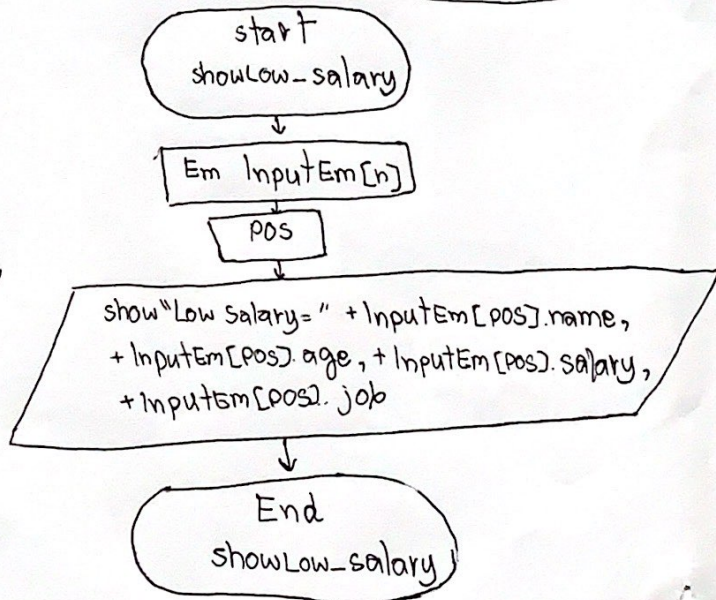 start
showLow_salary
Em InputEm[n]
pos
show "Low Salary=" + InputEm[pos].name,
+ InputEm[pos].age, + InputEm[pos].salary,
+ InputEm[pos].job
End
showLow_salary